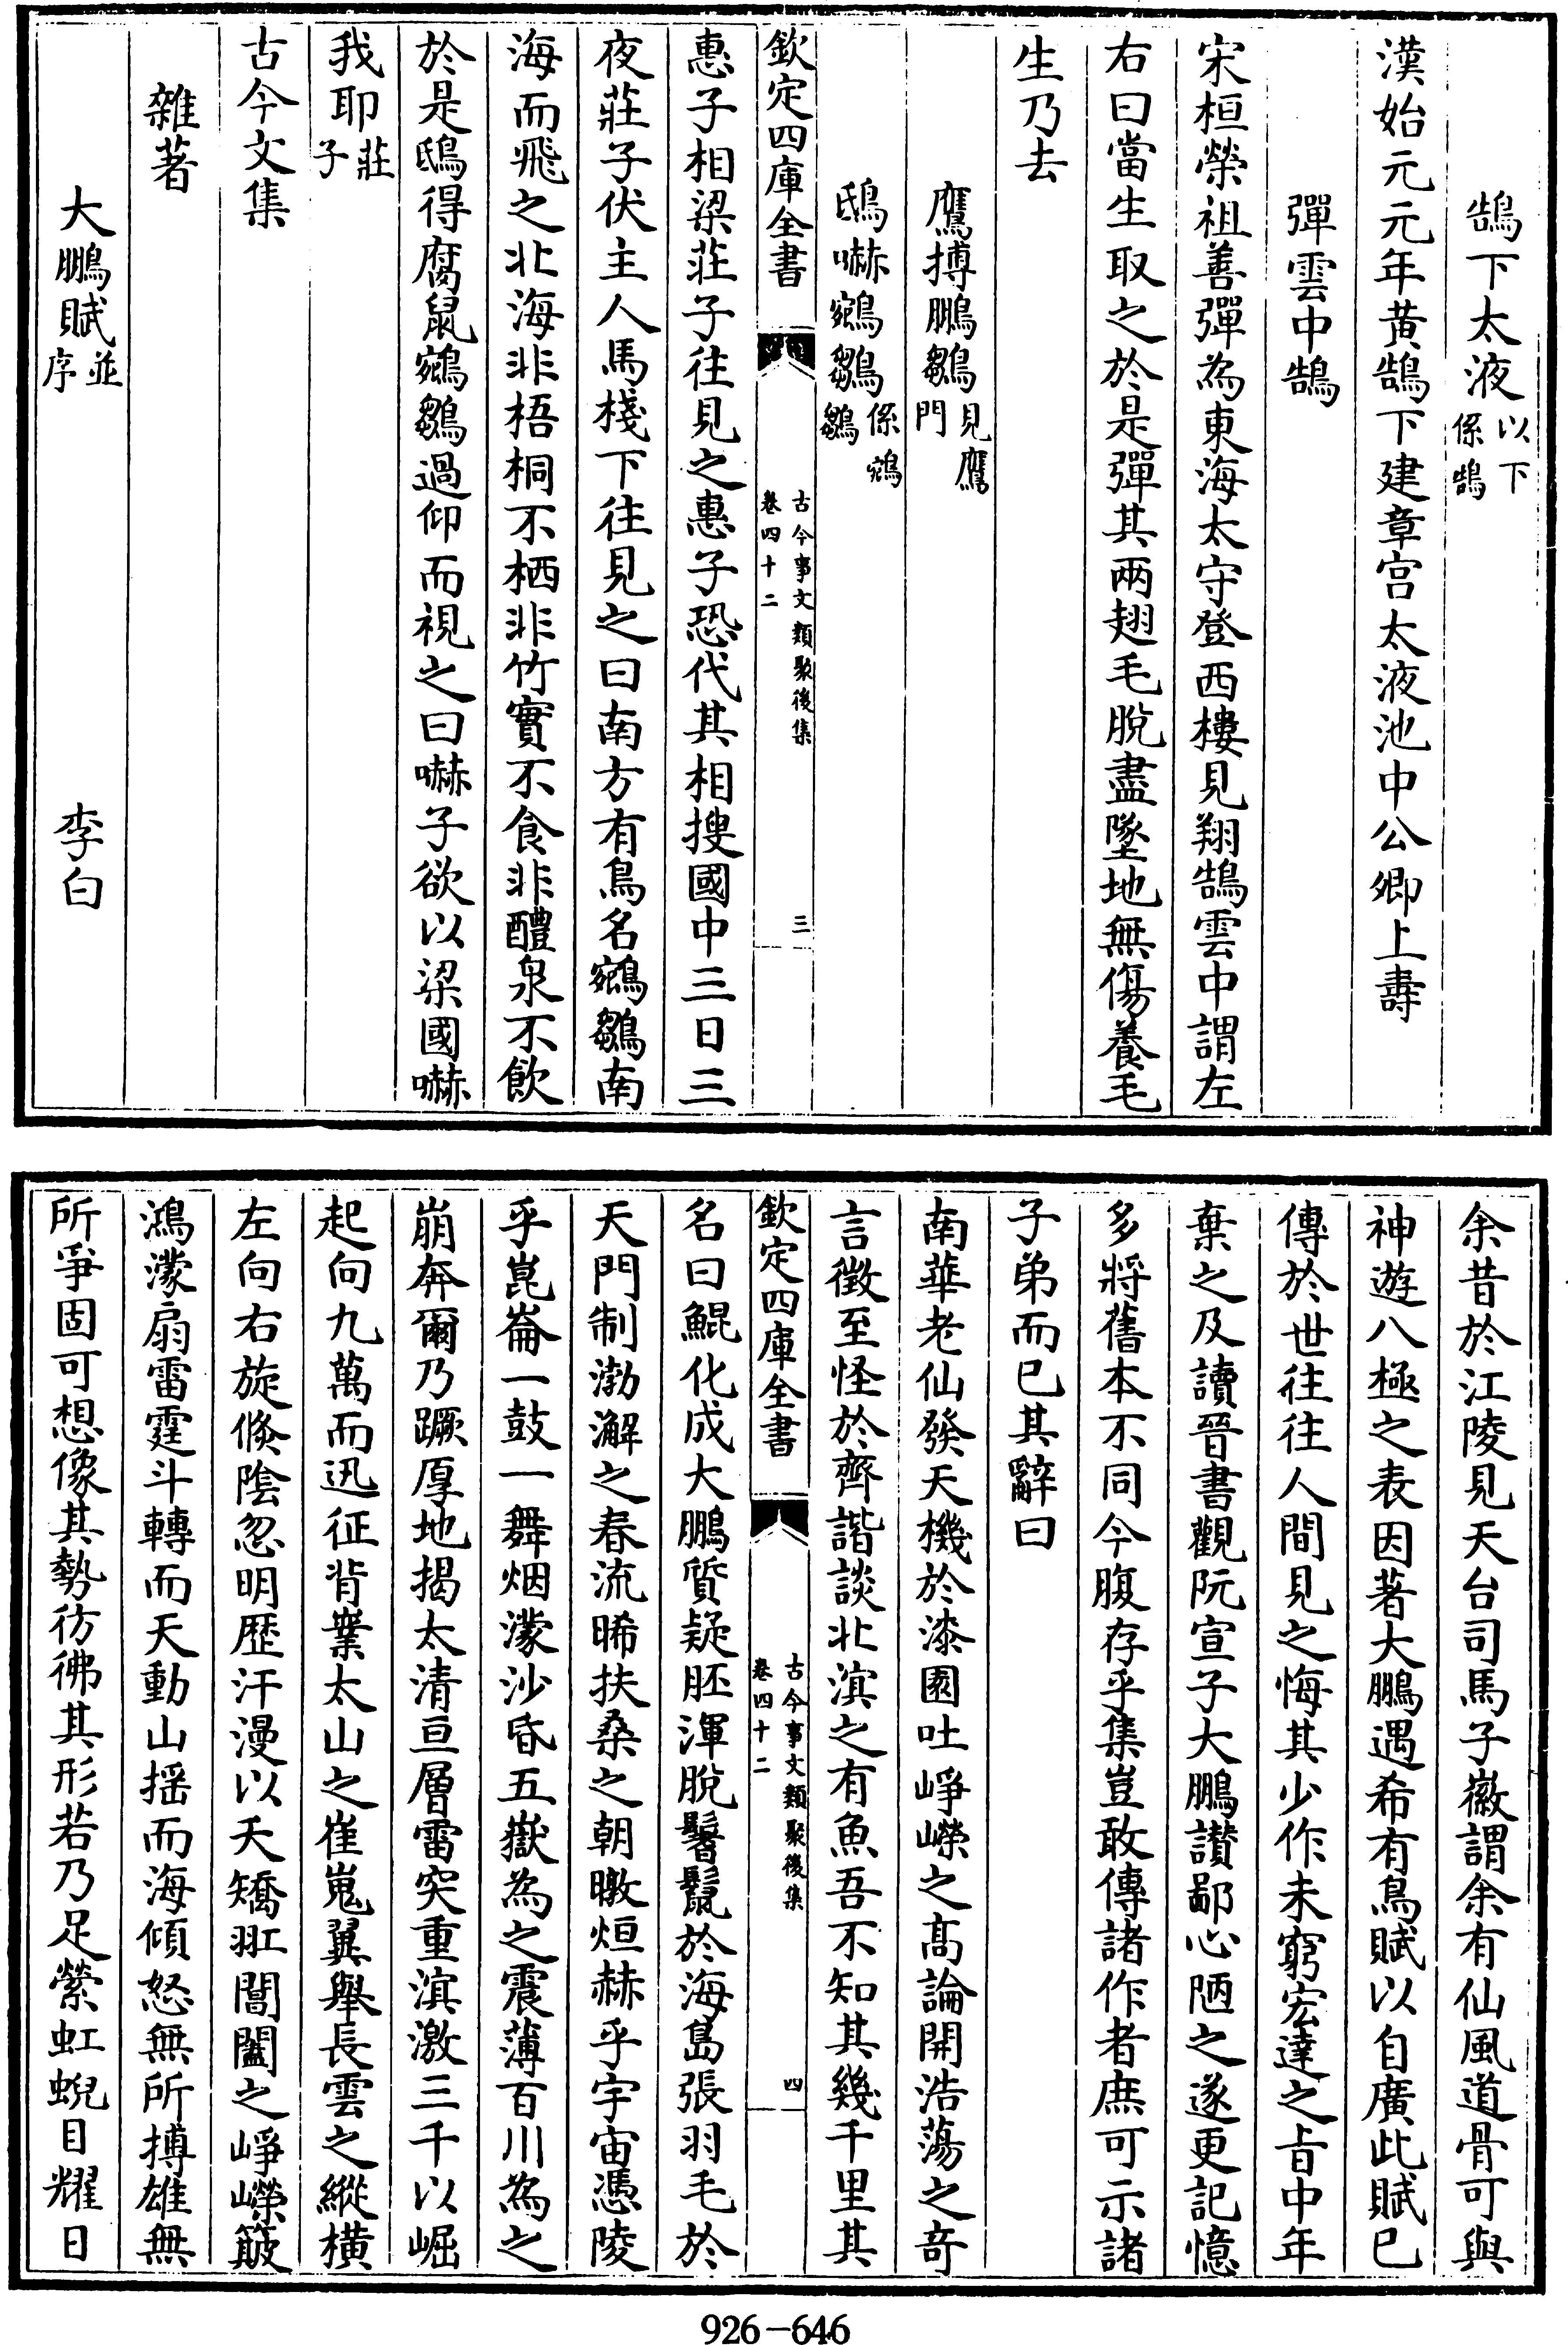 鵠下太液以下係鵠
漢始元元年黄鵠下建章宫太液池中公卿上壽
彈雲中鵠
宋桓榮祖善彈為東海太守登西樓見翔鵠雲中謂左
右曰當生取之於是彈其兩翅毛脫盡墜地無傷養毛
生乃去
鷹搏鵬鶵見鷹門
鴟嚇鵷鶵係鵷鶵
欽定四庫全書
古今事文類聚後集
卷四十二
三
惠子相梁莊子往見之惠子恐代其相搜國中三日三
夜莊子伏主人馬棧下往見之曰南方有鳥名鵷鶵南
海而飛之北海非梧桐不栖非竹實不食非醴泉不飲
於是鴟得腐鼠鵷鶵過仰而視之曰嚇子欲以梁國嚇
我耶莊子
古今文集
雜著
大鵬賦並序 李白
余昔於江陵見天台司馬子徽謂余有仙風道骨可與
神遊八極之表因著大鵬遇希有鳥賦以自廣此賦已
傳於世往往人間見之悔其少作未窮宏達之旨中年
棄之及讀晉書觀阮宣子大鵬讃鄙心陋之遂更記憶
多將舊本不同今腹存乎集豈敢傳諸作者庶可示諸
子弟而已其辭曰
南華老仙發天機於漆園吐崢嶸之高論開浩蕩之奇
言徵至怪於齊諧談北溟之有魚吾不知其幾千里其
欽定四庫全書
古今事文類聚後集
卷四十二
四
名曰鯤化成大鵬質疑胚渾脫鬐鬣於海島張羽毛於
天門制渤澥之春流晞扶桑之朝暾烜赫乎宇宙憑陵
乎崑崙一鼓一舞烟濛沙昏五嶽為之震薄百川為之
崩奔爾乃蹶厚地揭太清亘層霄突重溟激三千以崛
起向九萬而迅征背嶪太山之崔嵬翼舉長雲之縱横
左向右旋倐陰忽明歴汗漫以夭矯羾閶闔之崢嶸簸
鴻濛扇雷霆斗轉而天動山揺而海傾怒無所搏雄無
所爭固可想像其勢彷彿其形若乃足縈虹蜺目耀日
926-646